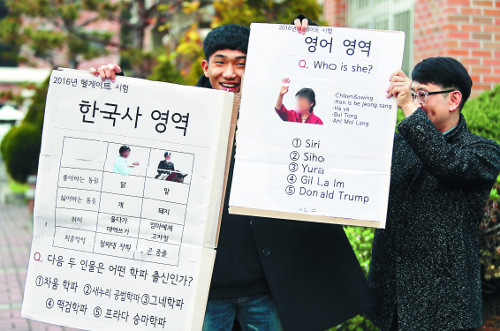 2016년 헬게이트 시험
한국사 영역
좋아하는 동물 닭 말
싫어하는 동물 개 돼지
취미 엄마에게
고자질
청와대 자택 곧 중졸
Q. 다음 두 인물은 어떤 학파 출신인가?
①차움 학파 ②새누리 공범학파 ③그네학파
④떡검학파 ⑤프라다 승마학파
2016년 헬게이트 시험
영어 영역
Q. Who is she?
-Chiken&swing
-Hon is be jeong sang
-Ha ya
-Bul Tong
-Ah! Mol Lang
① Siri
② Siho
③ Yura
④ Gil La Im
⑤ Donald Trump